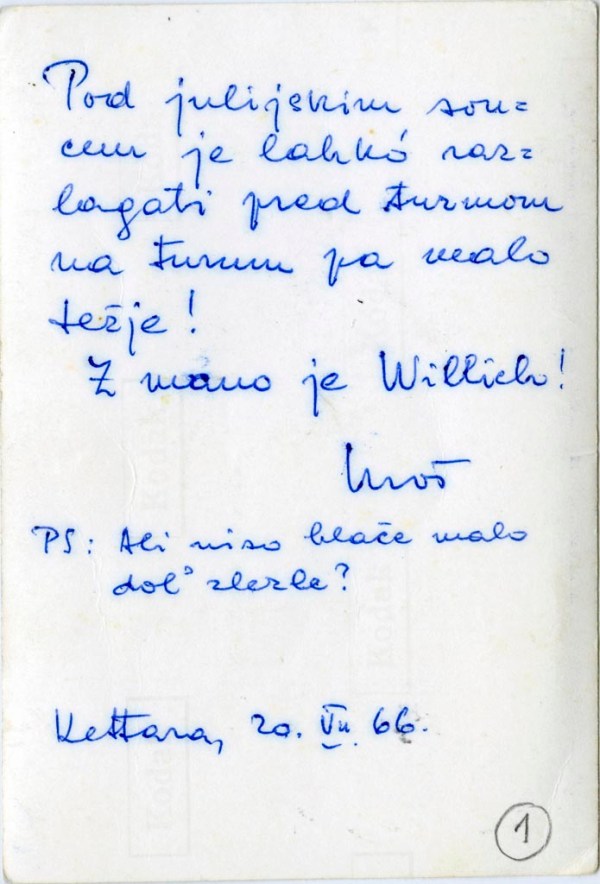 Pod julijskim son=
cem je lahkó raz=
lagati pred turmom
na turmu pa malo
težje!
Z mano je Willich!
Uroš
PS: Ali niso hlače malo
dol' zlezle?
Kettara, 20. VII. 66.
1